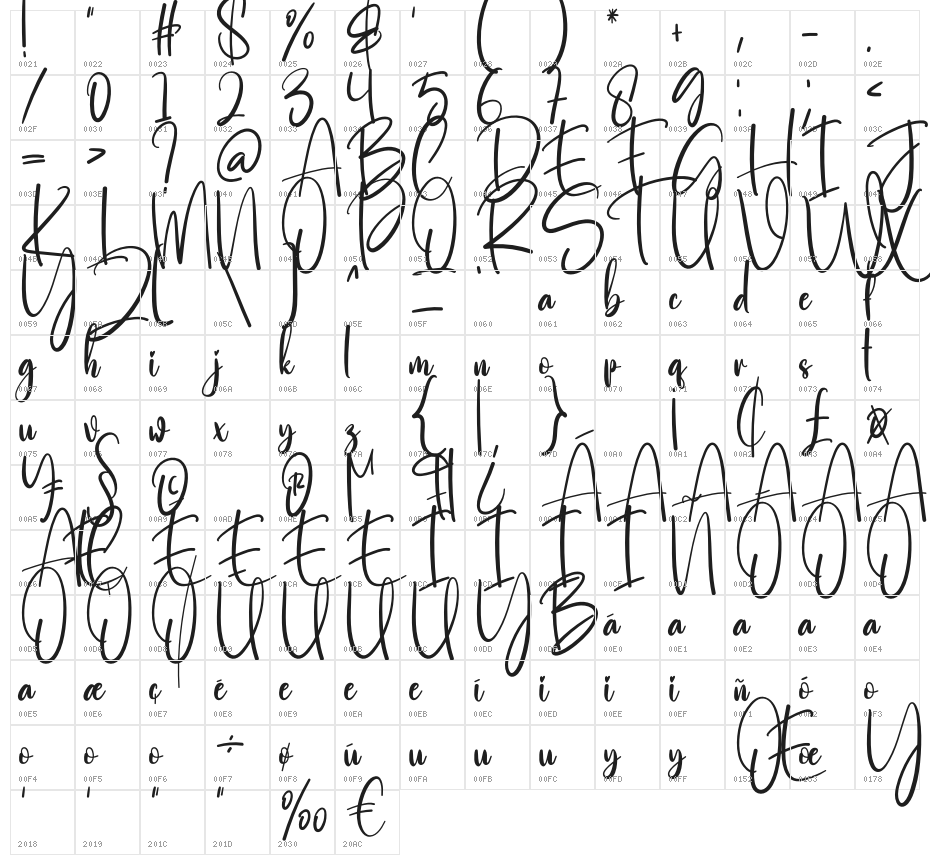 ! " # $ % & ' ( ) * + , - .
0021 0022 0023 0024 0025 0026 0027 0028 0029 002A 002B 002C 002D 002E
/ 0 1 2 3 4 5 6 7 8 9 : ; <
002F 0030 0031 0032 0033 0034 0035 0036 0037 0038 0039 003A 003B 003C
= > ? @ A B C D E F G H I J
003D 003E 003F 0040 0041 0042 0043 0044 0045 0046 0047 0048 0049 004A
K L M N O P Q R S T U V W X
004B 004C 004D 004E 004F 0050 0051 0052 0053 0054 0055 0056 0057 0058
Y Z [ \ ] ^ _ ` a b c d e f
0059 005A 005B 005C 005D 005E 005F 0060 0061 0062 0063 0064 0065 0066
g h i j k l m n o p q r s t
0067 0068 0069 006A 006B 006C 006D 006E 006F 0070 0071 0072 0073 0074
u v w x y z { | } ¡ ¢ £ ¤
0075 0076 0077 0078 0079 007A 007B 007C 007D 00A0 00A1 00A2 00A3 00A4
¥ § © ® µ ¶ ¿
00A5 00A7 00A9 00AD 00AE 00B5 00B6 00BF 00C0 00C1 00C2 00C3 00C4 00C5
00C6 00C7 00C8 00C9 00CA 00CB 00CC 00CD 00CE 00CF 00D1 00D2 00D3 00D4
00D5 00D6 00D8 00D9 00DA 00DB 00DC 00DD 00DF 00E0 00E1 00E2 00E3 00E4
a æ ç é e e e í i i i ñ ó o
00E5 00E6 00E7 00E8 00E9 00EA 00EB 00EC 00ED 00EE 00EF 00F1 00F2 00F3
o o o ÷ ø ú u u u y y Œ œ Y
00F4 00F5 00F6 00F7 00F8 00F9 00FA 00FB 00FC 00FD 00FF 0152 0153 0178
' ' " " ‰ €
2018 2019 201C 201D 2030 20AC